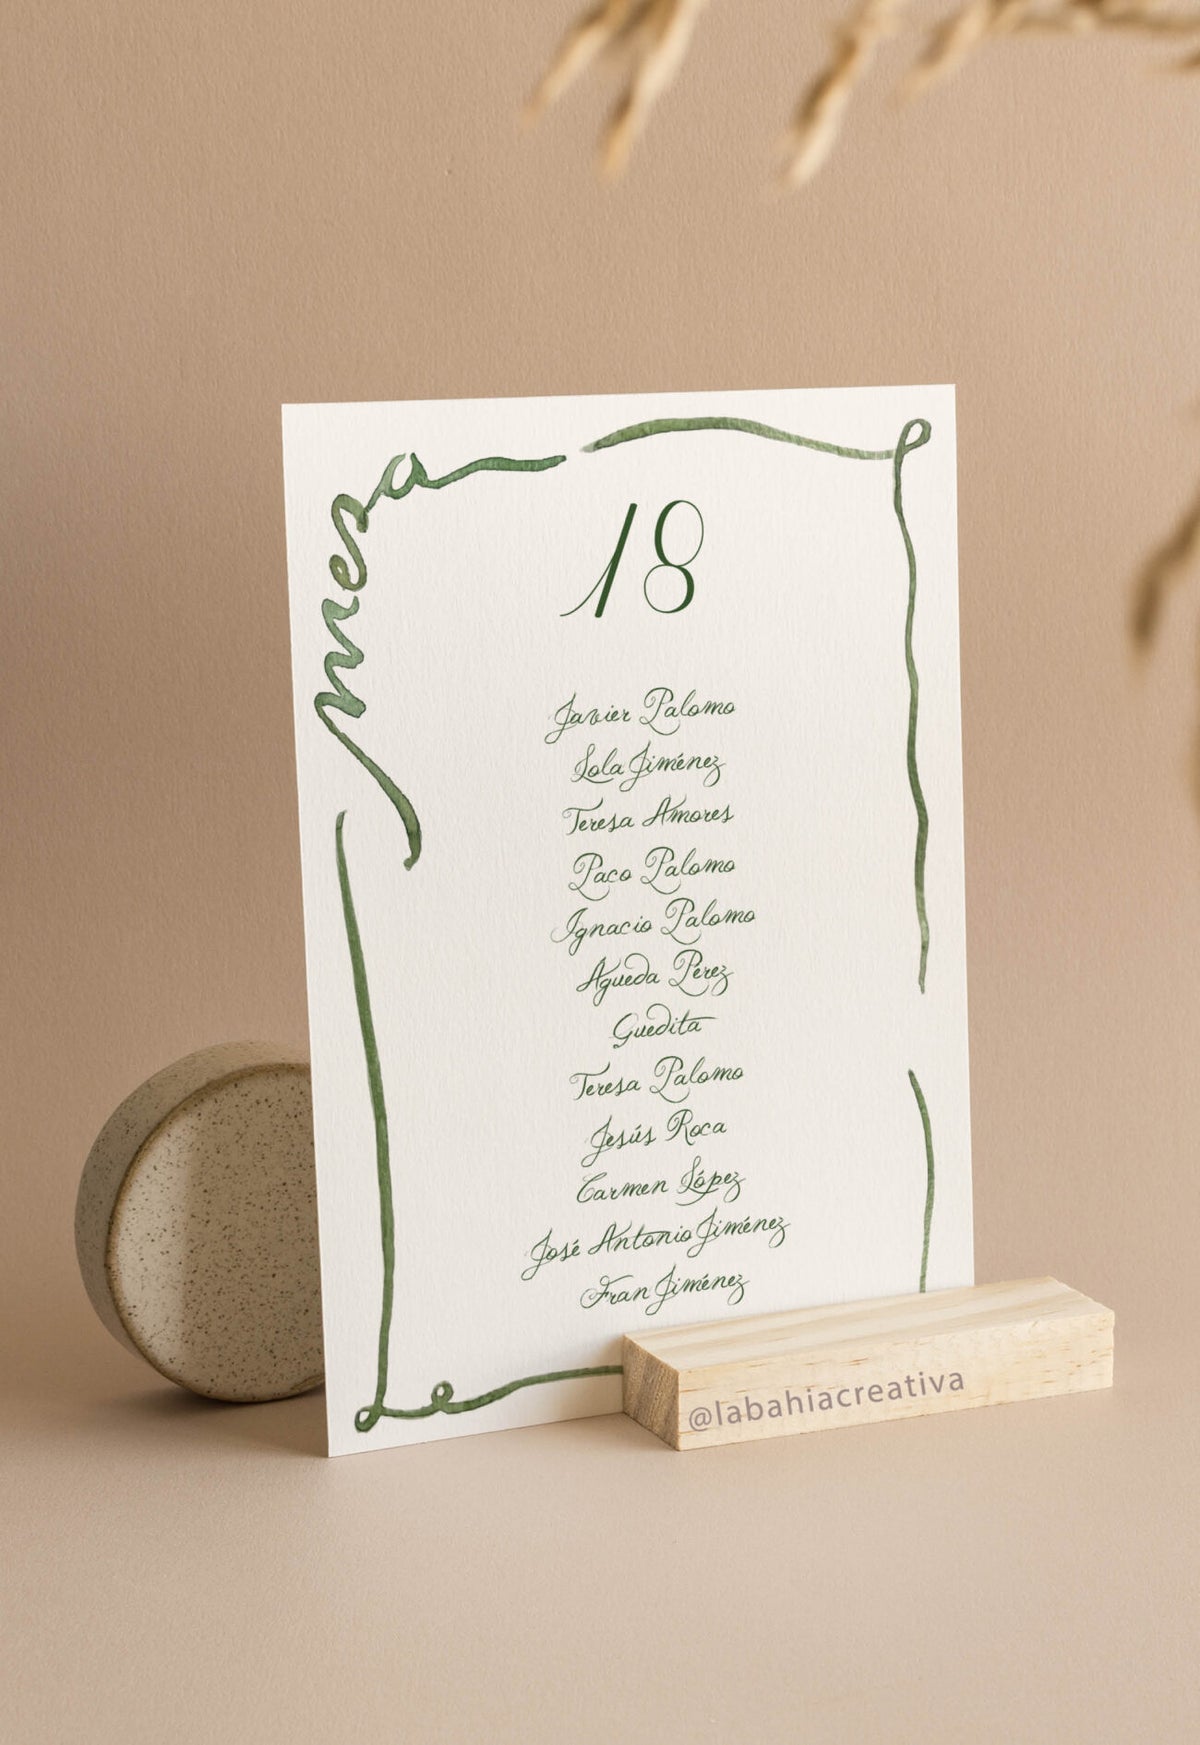 mesa
18
Javier Palomo
Lola Jiménez
Teresa Amores
Paco Palomo
Ignacio Palomo
Águeda Pérez
Guedita
Teresa Palomo
Jesús Roca
Carmen López
José Antonio Jiménez
Fran Jiménez
@labahiacreativa